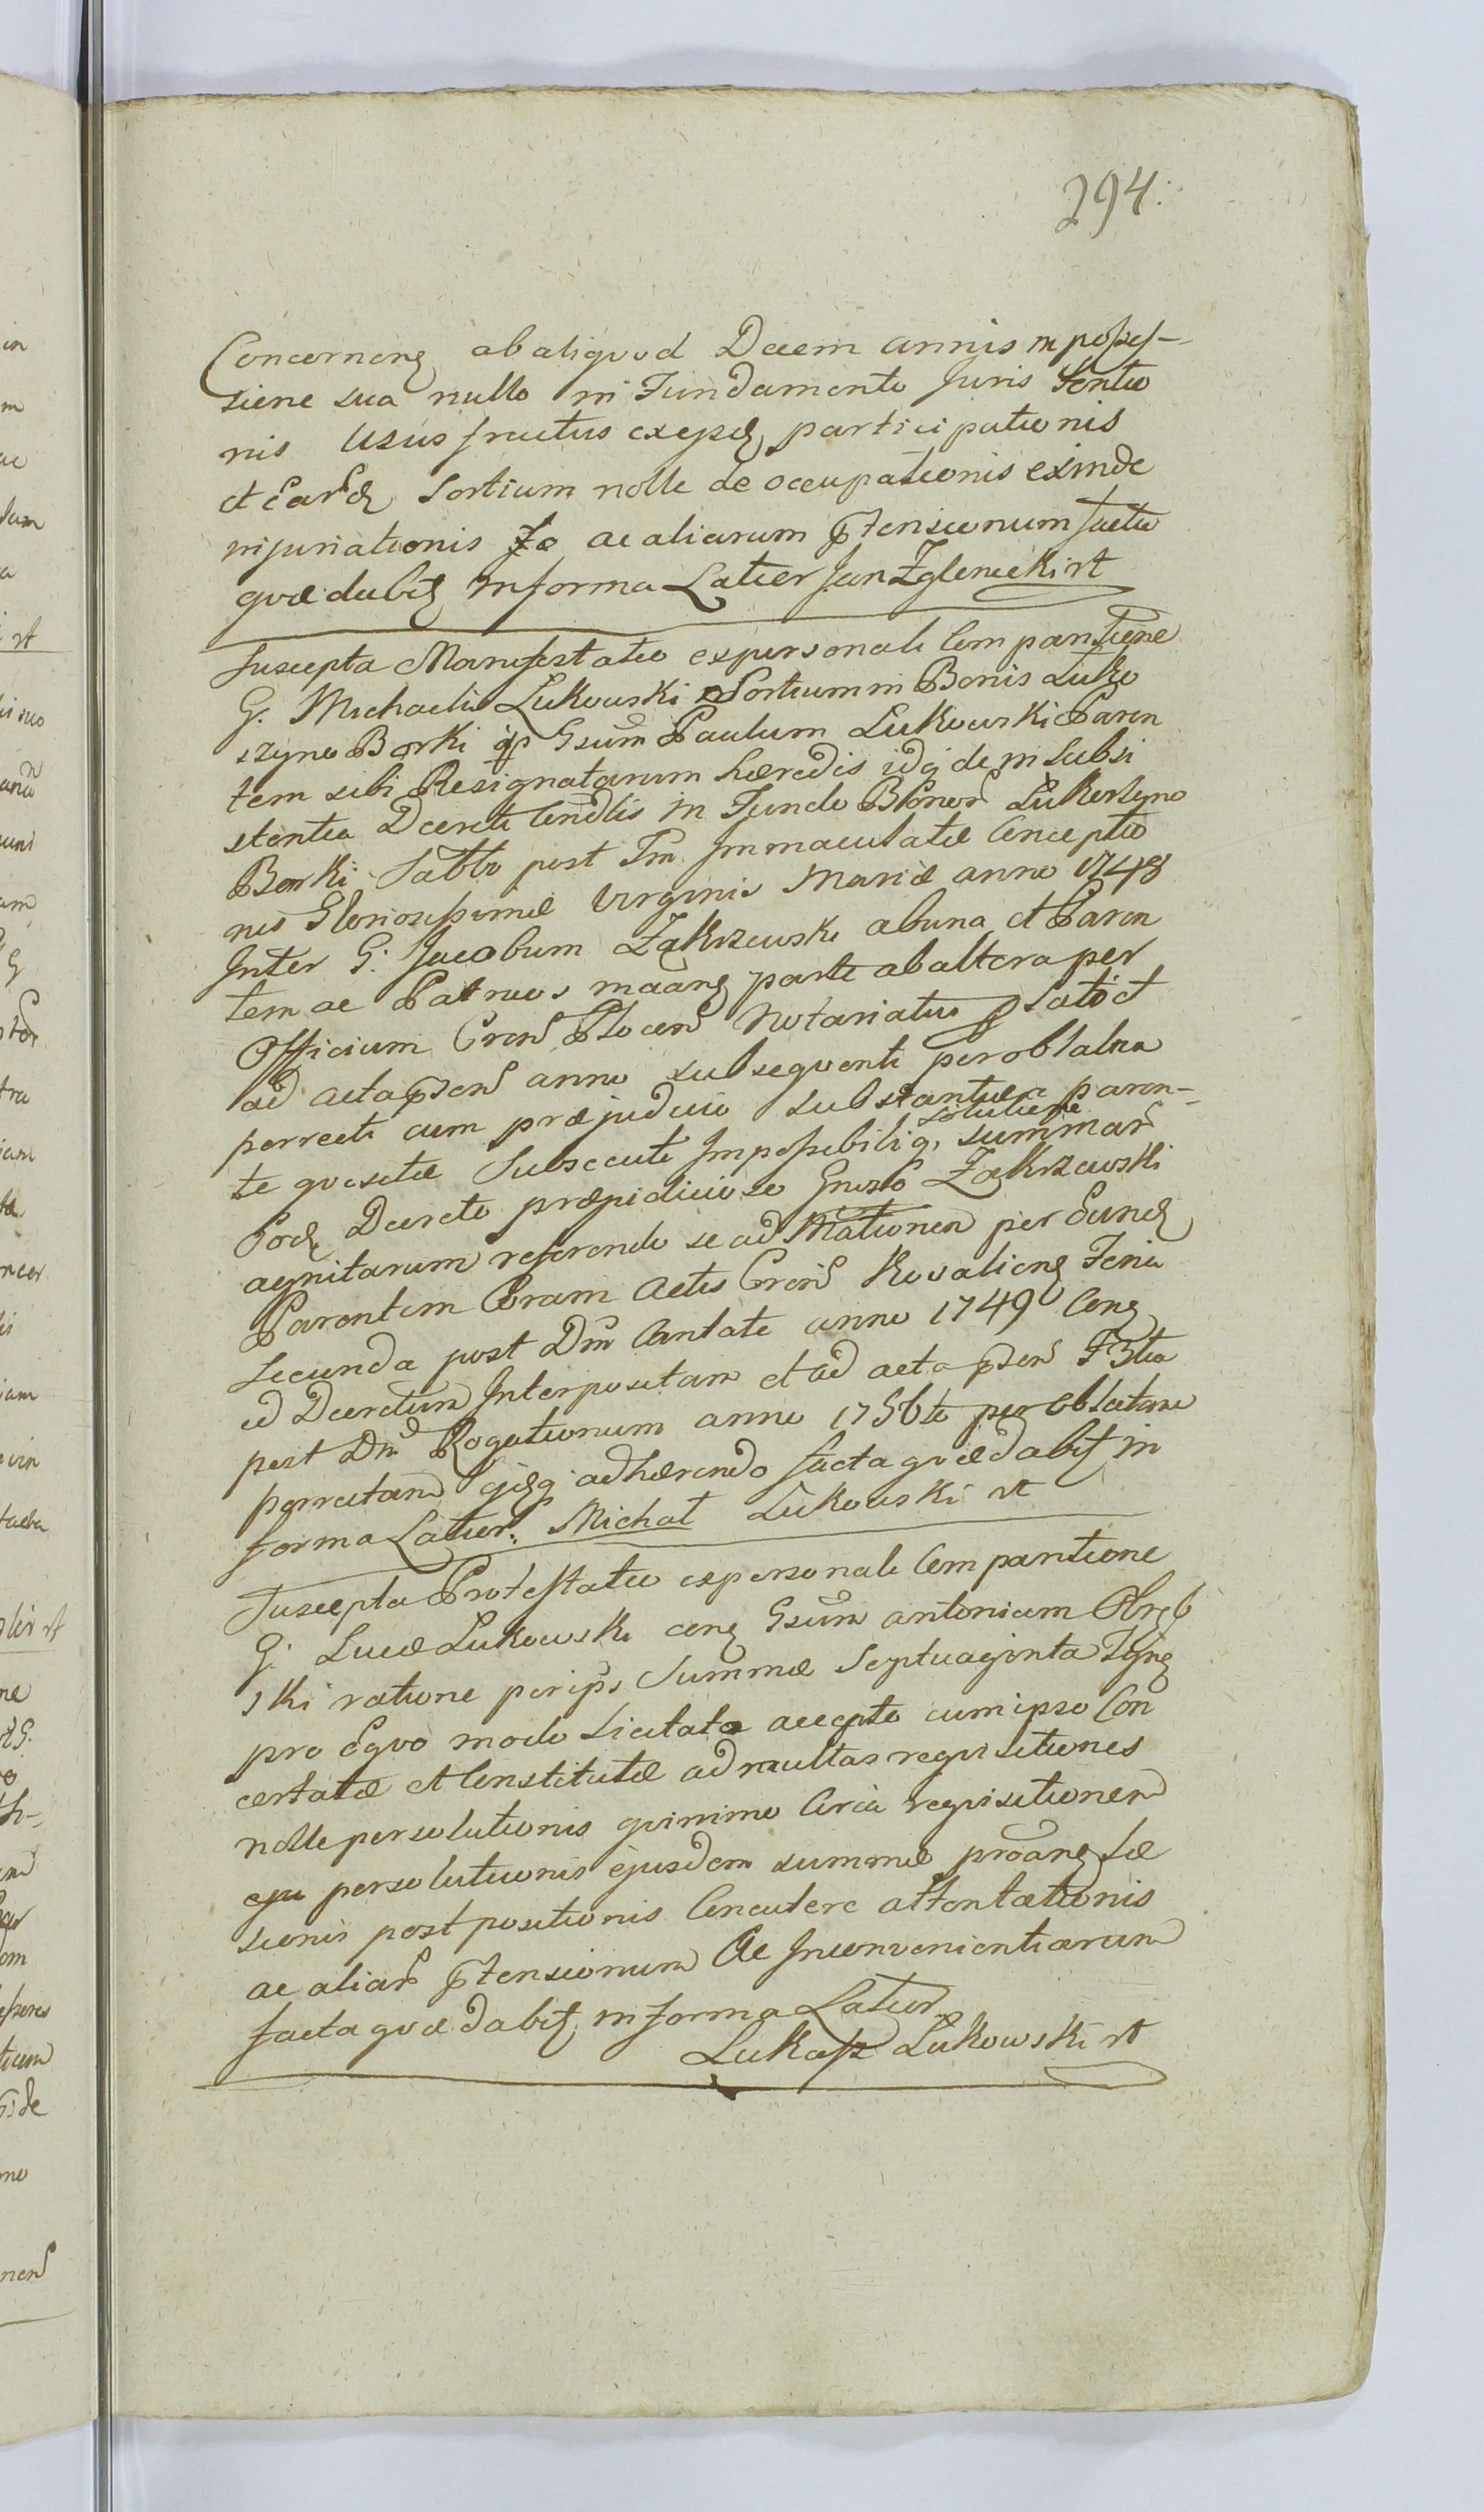 294.
Concernens ab aliquod Decem annis in posses-
sione sua nullo in Fundamento Juris Tentio
nis Usus fructus exijsd participationis
et eard Sortium nolle de occupationis exinde
injuriationis ac aliarum ptensionum facta
quæ dabit in forma Latior Jan Zglenicki rt
Suscepta Manifestatio ex personali Comparitione
G. Michaelis Lukowski Sortium in Bonis Luko
szyno Borki p Gsum Paulum Lukowski Paren
tem sibi Resignatarum hæredis idq de in Subsi
stentia Decreti Condlis in Fundo Bonor Lukoszyno
Borki Sabbo post Fm Immaculatæ Conceptio
nis Gloriosissimæ Virginis Mariæ anno 1748
Inter G. Jacobum Zakrzewski ab una et Paren
tem ac Patruos mãans parte ab altera per
Officium Cren Plocen Notariatus Lati et
ad acta psen anno subsequenti per oblatam
porrecti cum præjudicio substantiæ a paren-
te quæsitæ Subsecuti Impossibiliq, solutione summar
Eod Decreto præjudiciose Gnoso Zakrzewski
agnitarum referendo se ad Mationem per Eund
Parentem Coram Actis Cren Kovaliens Feria
Secunda post Dm Cantate anno 1749 Cons
id Decretum Interpositam et ad acta psen F 3tia
post Dm Rogationum anno 1756to per oblatam
porrectam ejsq adhærendo facta quæ dabit in
forma Latior. Michał Lukowski rt
Suscepta Protestatio ex personali Comparitione
G. Lucæ Lukowski cons Gsum Antonium Obręb
ski ratione per ips Summæ Septuaginta Tyns
pro Equo modo Licitato accepto cum ipso Con
certatæ et Constitutæ ad multas requisitiones
nolle persolutionis quinimo Circa requisitionem
eju persolutionis ejusdem summæ proans Læ
sionis postpositionis Concutere attentationis
ac aliar ptensionum Ac Inconvenientiarum
facta quæ dabit in forma Latior
Lukasz Lukowski rt